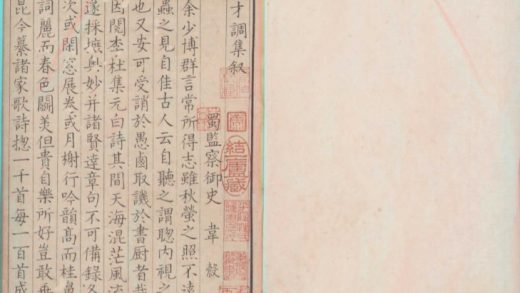 才調集叙
蜀監察御史 韋縠
余少博群言常所得志雖秋螢之照不遠
蟲之見自佳古人云自聽之謂聰内視之
也又安可受誚於愚鹵取譏於書廚者哉
因閱李杜集元白詩其間天海混茫風流
遂採摭奧妙并諸賢達章句不可備錄各
次或閑窓展卷或月榭行吟韻高而桂魄
詞麗而春色鬭美但貴自樂所好豈敢垂
昆今纂諸家歌詩揔一千首每一百首成
結一廬藏